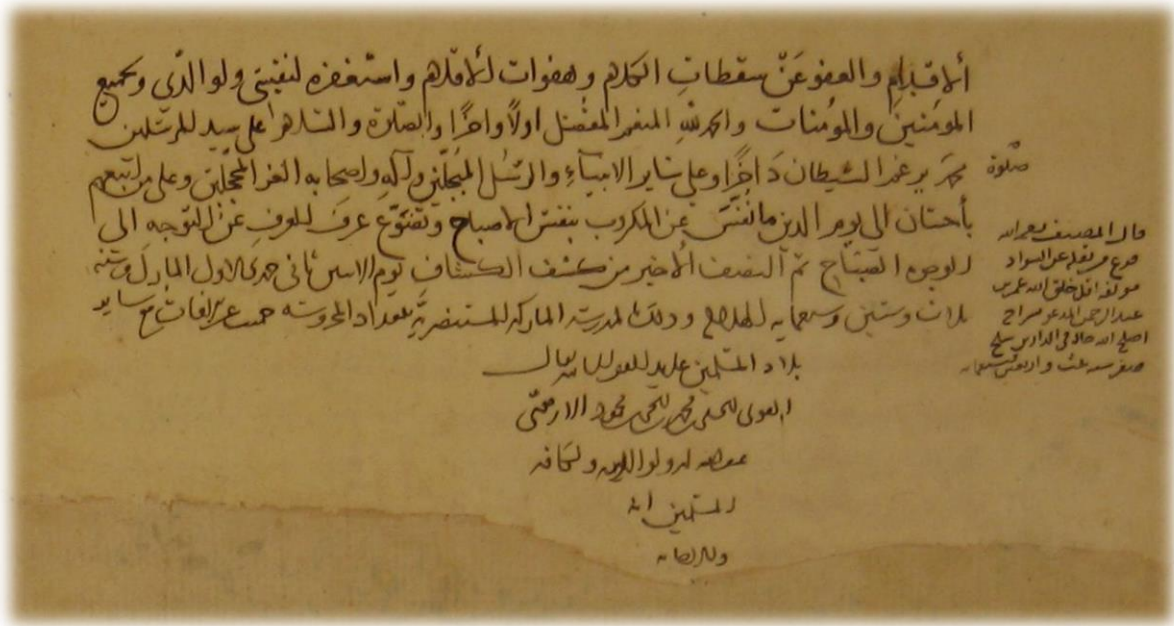 الاقدام والعفو عن سقطات الكلام وهفوات الاقلام واستغفره لنفسي ولوالدي ولجميع
المؤمنين والمؤمنات والحمد لله المنعم المفضل اولاً واخرًا والصلاة والسلام على سيد المرسلين
محمد يرغم الشيطان داخرًا وعلى ساير الانبياءِ والرسل المبجلين وآلهِ واصحابه الغر المحجلين وعلى من اتبعهم
بأحسان الى يوم الدين ما نُفّسَ عن المكروب بنفس الاصباح وتضوّع عرفَ العرفِ عن التوجه الى
الوجوه الصباح تم النصف الاخير من كشف الكشاف يوم الاثنين ثاني جمدى الاول المبارك من سنة
ثلاث وستين وسبعمايه الهلاليه وذلك بالمدرسة المباركه المستنصريّة ببغداد المحروسة حميت عن الافات مع ساير
بلاد المسلمين على يد
محمد بن محمد بن محمود
عفا الله له ولوالديه ولكافه
المسلمين انه
صلوة
قال المصنف رحمه الله
فرغ من نقله عن السواد
مولفه اقل خلق الله عمر بن
عبد الرحمن المدعو بسراج
اصلح الله حاله في الدارين سلخ
صفر سنه